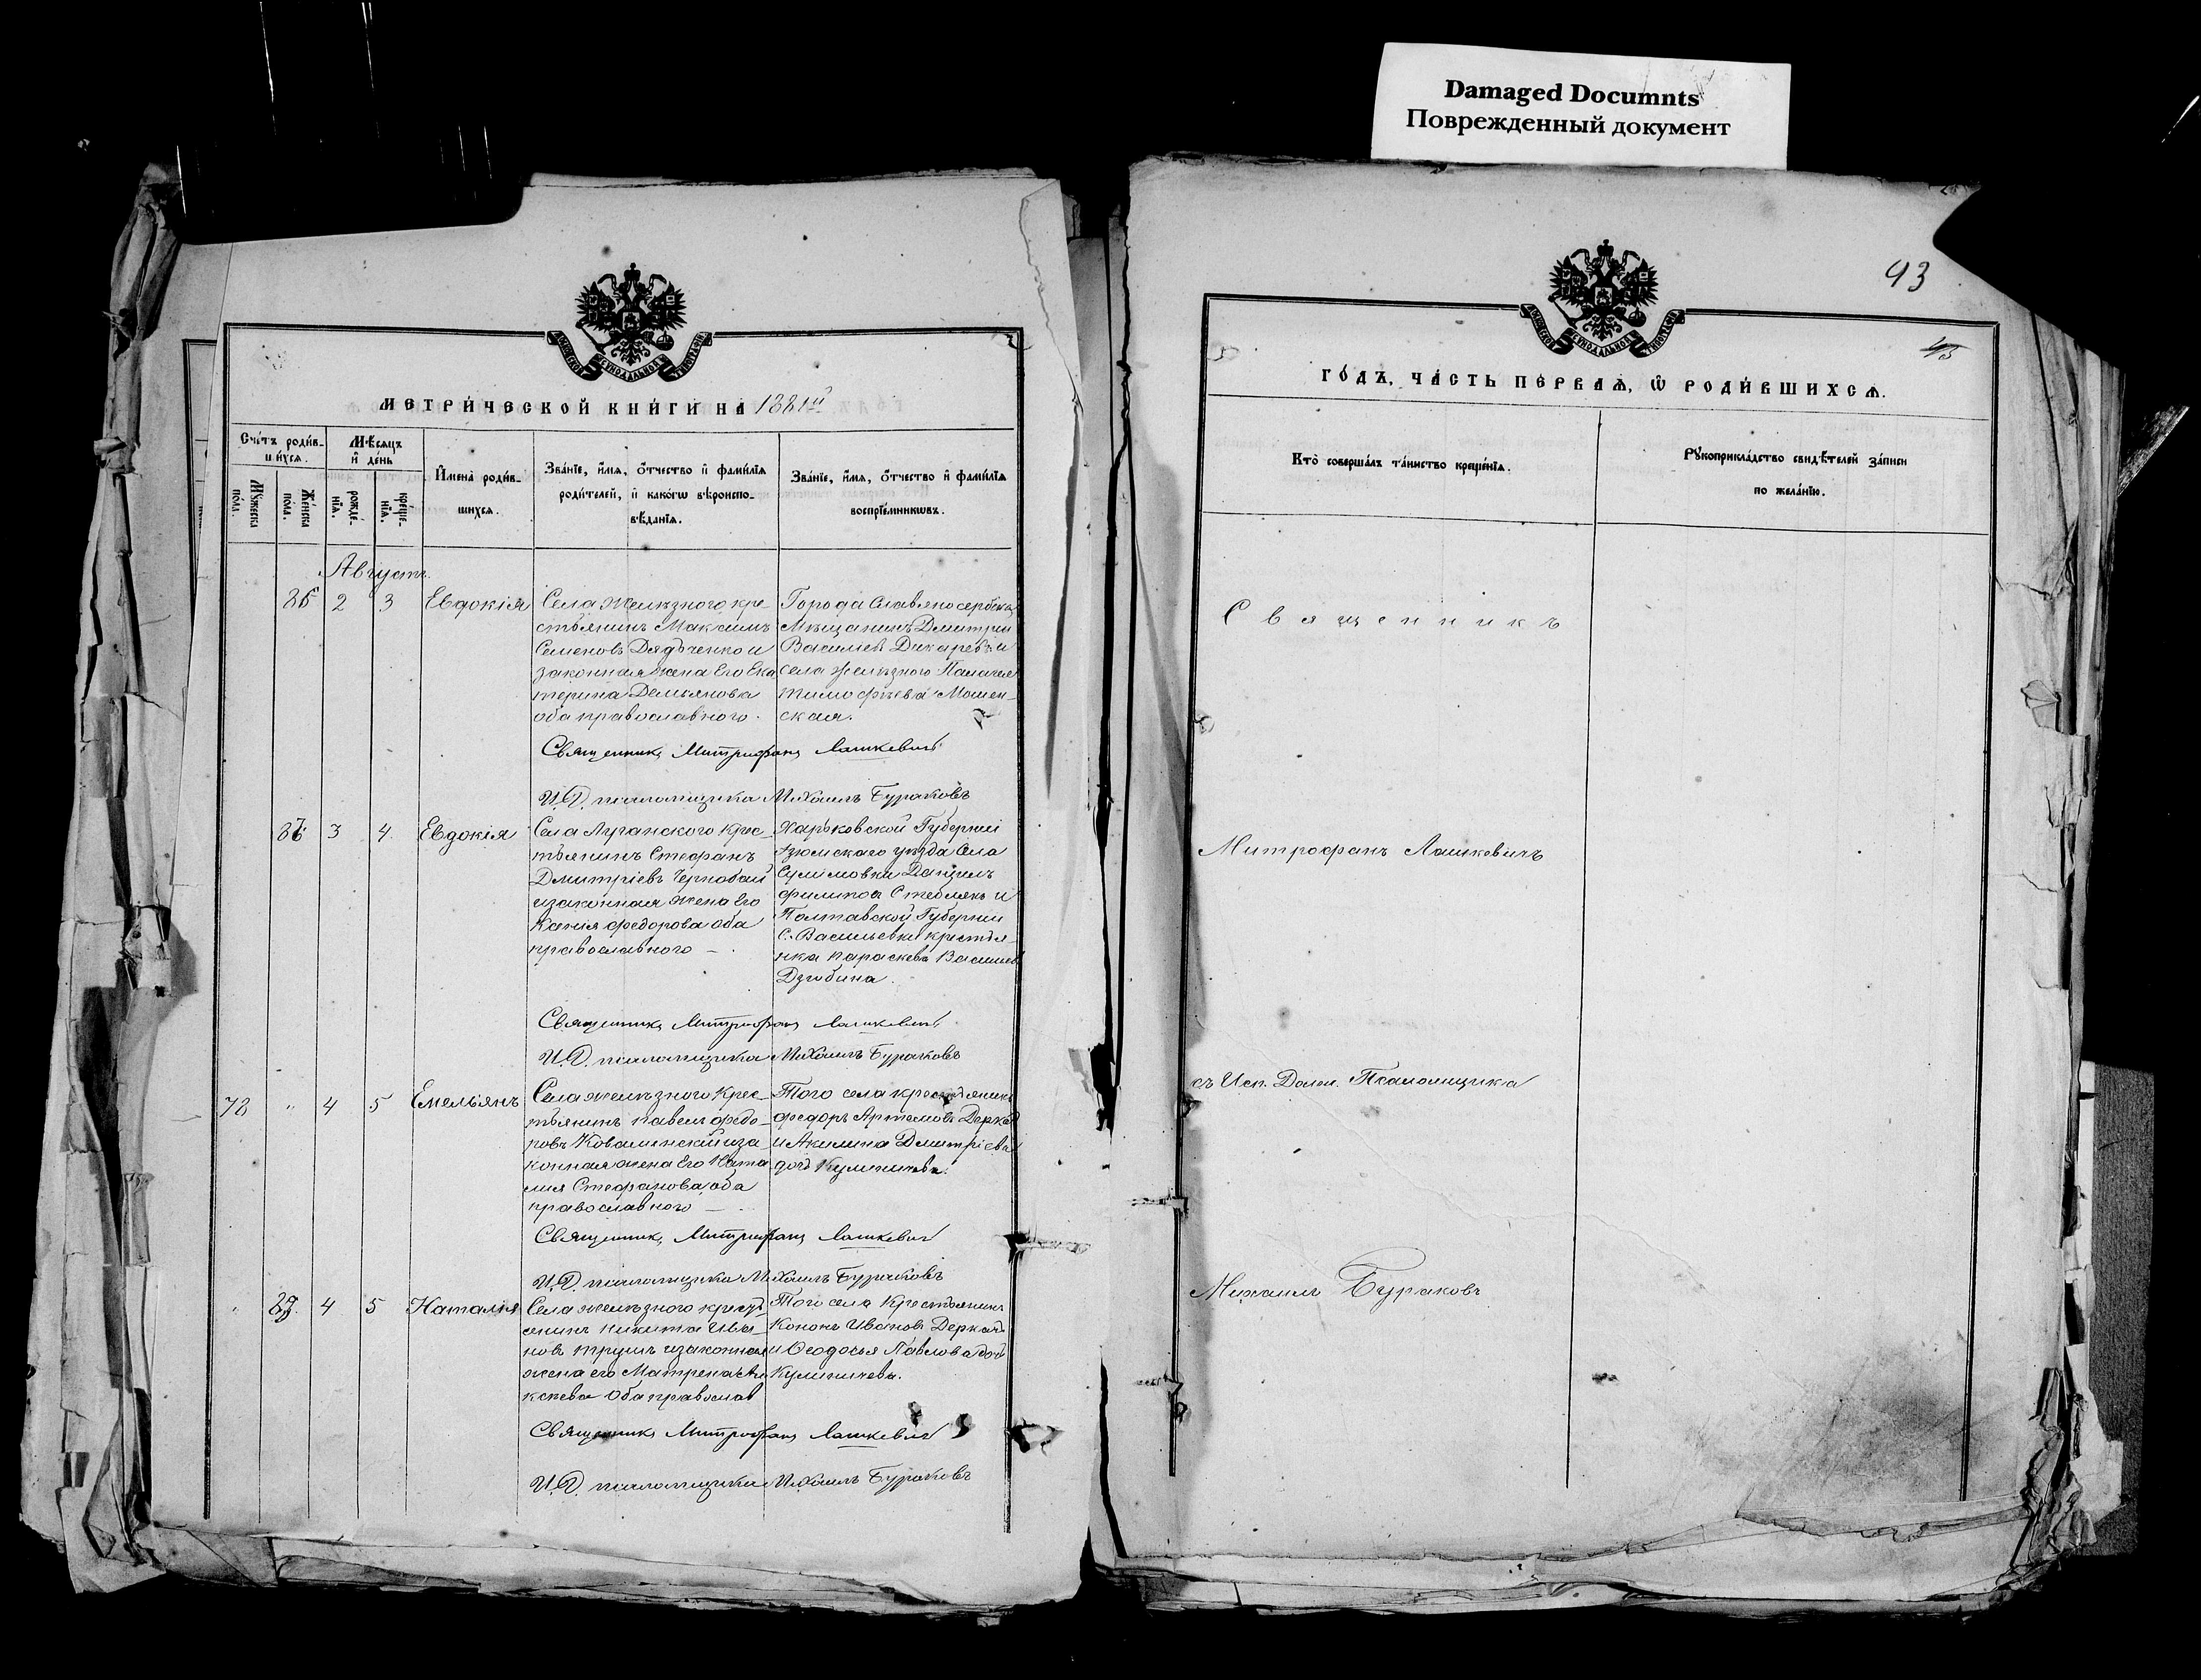 Damaged Documnts
Поврежденный документ
МЕТРИЧЕСКОЙ КНИГИ НА 1881й
Счетъ родив-
шихся.
Мѣсяцъ
и день
Мужеска
пола.
Женска
пола.
рожде-
нія.
креще-
нія.
Имена родив-
шихся.
Званіе, имя, отчество и фамилія
родителей, и какогѡ вѣроиспо-
вѣданія.
Званіе, имя, отчество и фамилія
воспріемникѡвъ.
Августъ
2 3 Евдокія
Села Желѣзного кре-
стьянинъ Максимъ
Семеновъ Дядьченко и
законная жена Его Ека
терина Демьянова
оба православного.
Города Славяносербска
Мѣщанинъ Дмитрій
Василіевъ Дикаревъ и
села Желѣзного
Тимофѣева Мошен-
ская.
Священникъ Митрофанъ Лашкевичъ
И.Д. псаломщика Михаилъ Бураковъ
3 4 Евдокія
Села Луганского Крес-
тьянинъ Стефанъ
Дмитріевъ Чернобай
и законная жена Его
Ксенія Федорова оба
православного
Харьковской Губерніи
Изюмскаго уѣзда Села
Данiилъ
Филиповъ и
Полтавской Губерніи
С. Васильевки крестья-
нка Параскева
Дзюбина.
Священникъ Митрофанъ Лашкевичъ
И.Д. псаломщика Михаилъ Бураковъ
78 " 4 5 Емельянъ
Села Желѣзного Крес-
тьянинъ Павелъ Федо-
ровъ Коваленскій и за
конная жена Его Ната
лія Стефанова, оба
православного
Того села крестьянинъ
Федоръ Артемовъ Деркачъ
и Акилина Дмитріева
дочь Куличкова.
Священникъ Митрофанъ Лашкевичъ
И.Д. псаломщика Михаилъ Бураковъ
" 4 5 Наталія
Села Желѣзного крестъ
янинъ Никита Ива-
новъ Трушъ и законная
жена его Матрена Але
ксѣева Оба православ
Того села Крестьянинъ
Кононъ Ивановъ Деркачъ
и Ѳеодосья Павлова дочь
Куличкова.
Священникъ Митрофанъ Лашкевичъ
И.Д. псаломщика Михаилъ Бураковъ
43
ГОДЪ, ЧАСТЬ ПЕРВАЯ, Ѿ РОДИВШИХСЯ.
Кто совершалъ таинство крещенія.
Рукоприкладство свидѣтелей записи
по желанію.
Священникъ
Митрофанъ Лашкевичъ
съ Исп. Долж. Псаломщика
Михаилъ Бураковъ